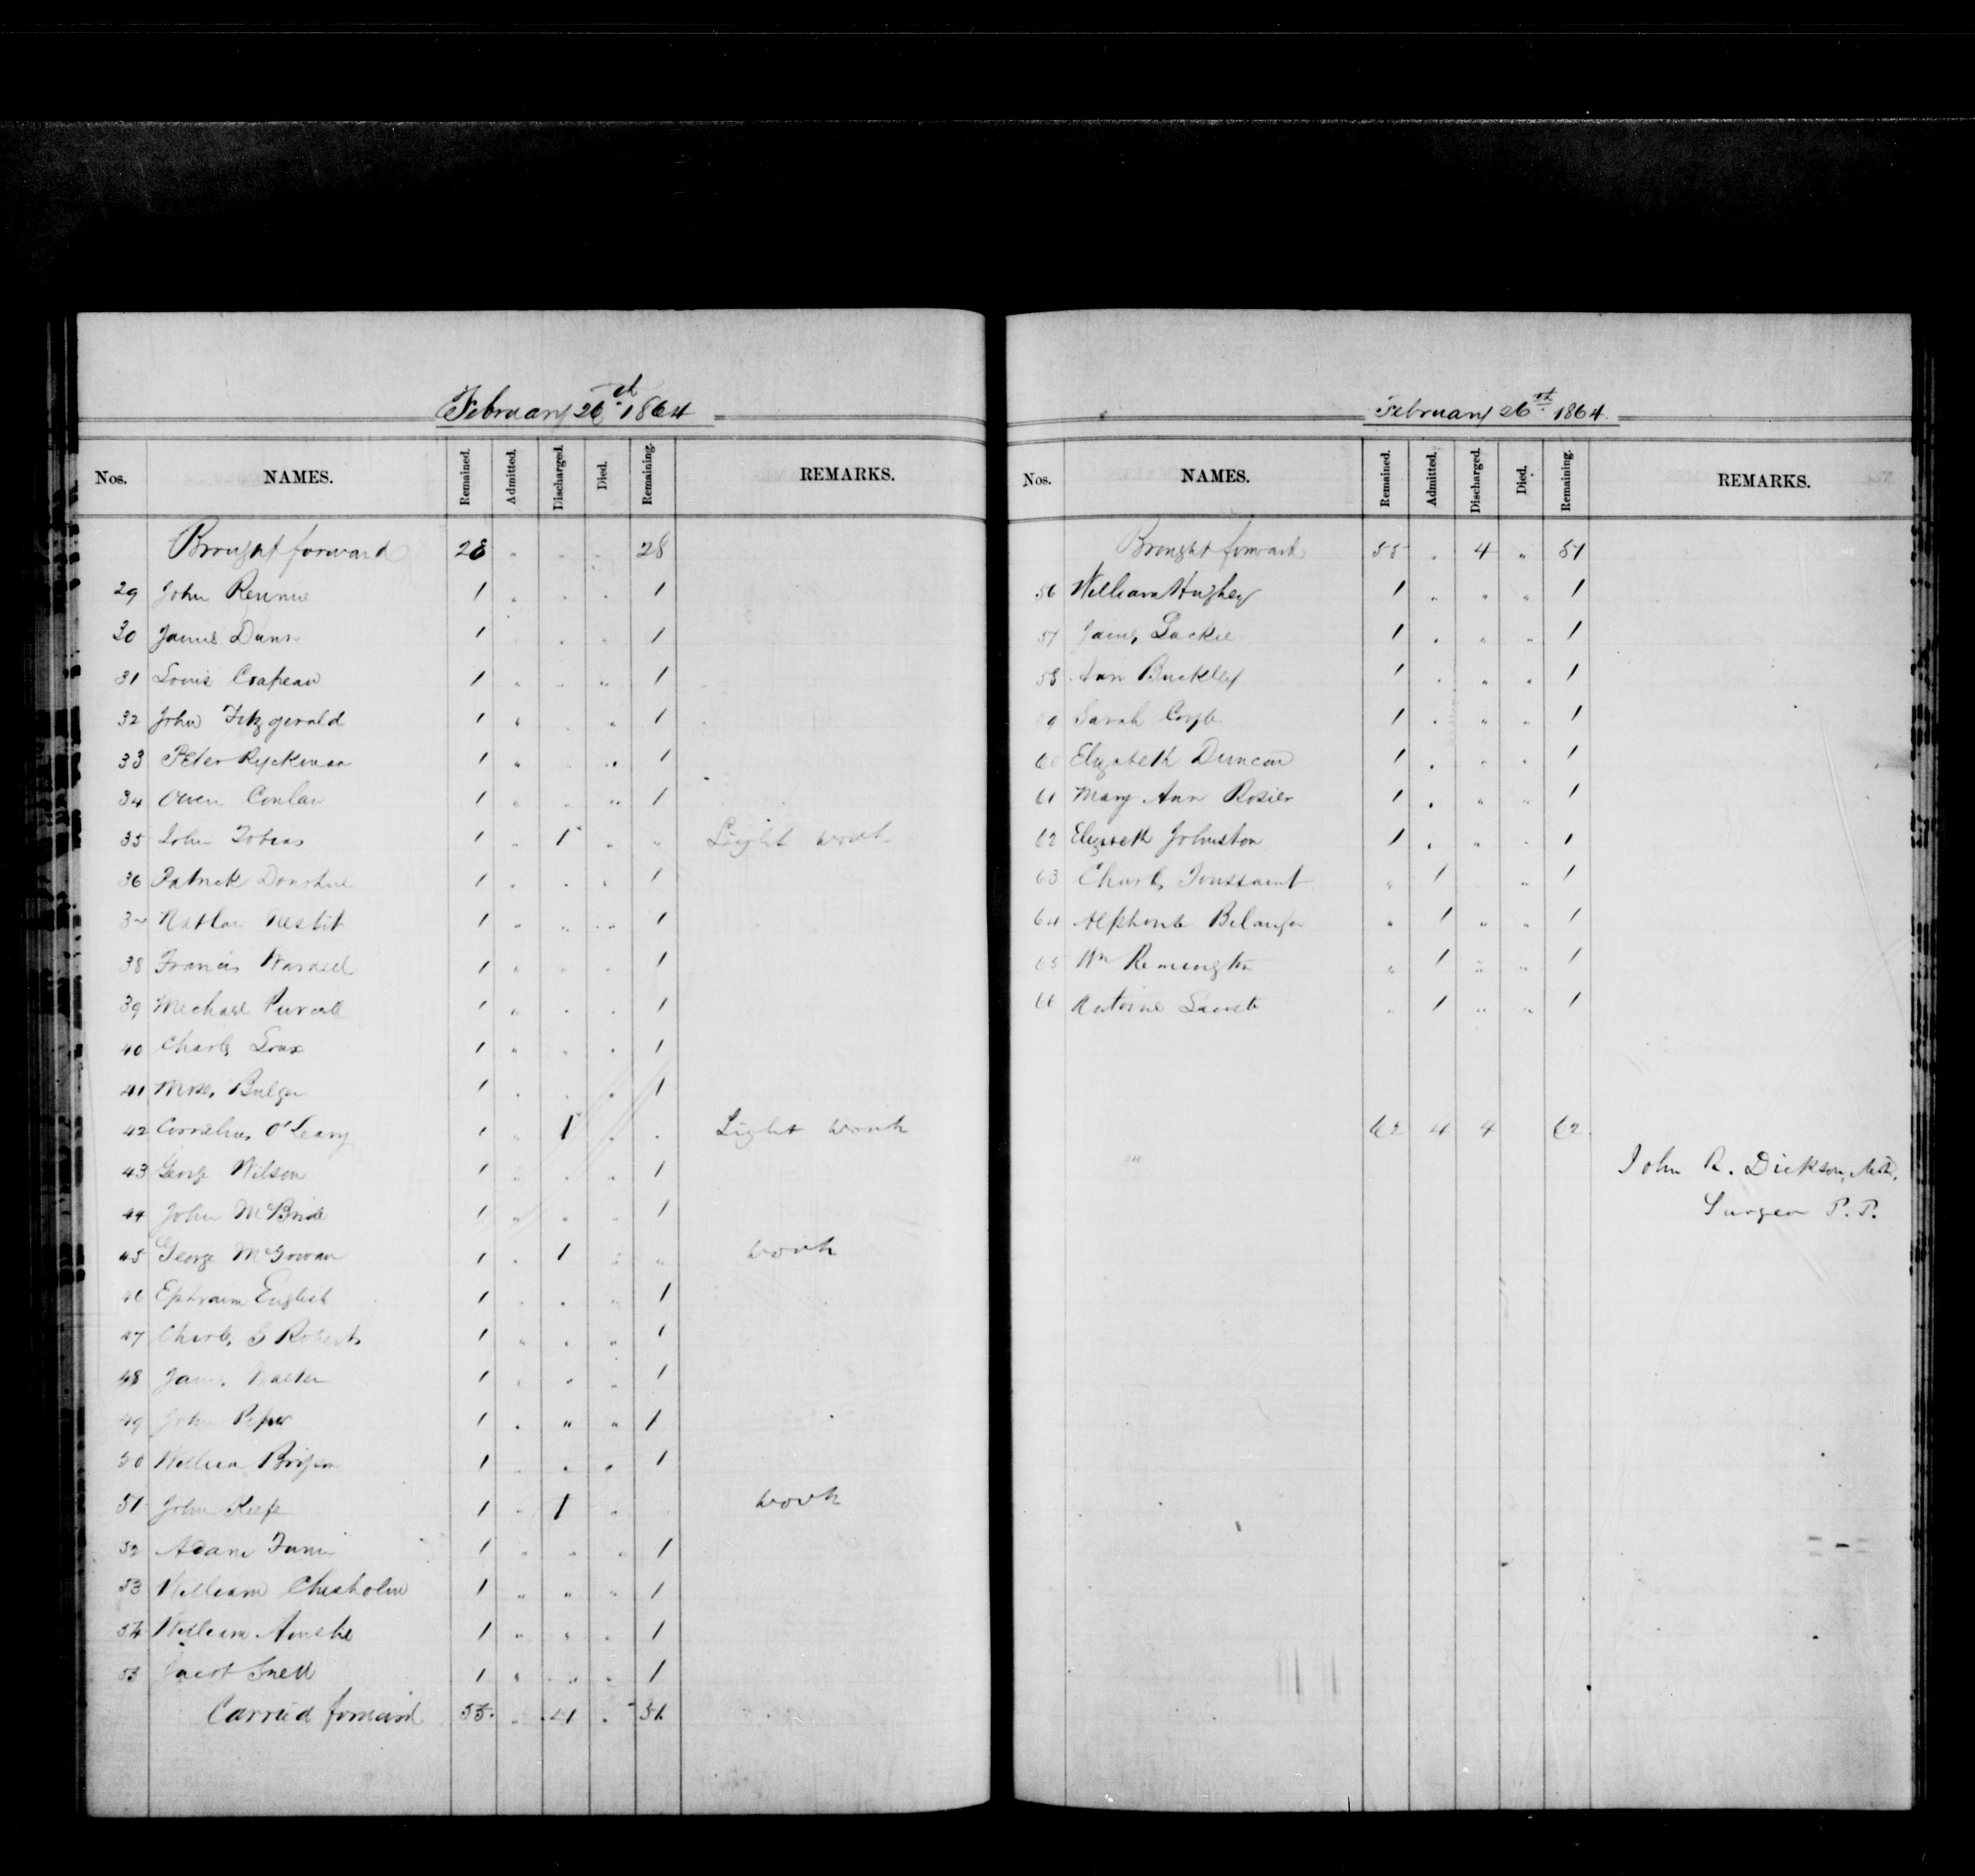 February 26th 1864
Nos. NAMES. Remained. Admitted. Discharged. Died. Remaining. REMARKS.
Brought forward 28 " " " 28
29 John Rennie 1 " " " 1
30 James Dunn 1 " " " 1
31 Louis Crapeau 1 " " " 1
32 John Fitzgerald 1 " " " 1
33 Peter Ryckman 1 " " " 1
34 Owen Conlan 1 " " " 1
35 John Tobias 1 " 1 " " Light work
36 Patrick Donohue 1 " " " 1
37 Nathan Nesbit 1 " " " 1
38 Francis Wardell 1 " " " 1
39 Michael Purcell 1 " " " 1
40 Charles Loux 1 " " " 1
41 Moses Bulger 1 " " " 1
42 Cornelius O'Leary 1 " 1 " " Light work
43 George Wilson 1 " " " 1
44 John McBride 1 " " " 1
45 George McGowan 1 " 1 " " work
46 Ephraim English 1 " " " 1
47 Charles G Roberts 1 " " " 1
48 James Walter 1 " " " 1
49 John Piper 1 " " " 1
50 William 1 " " " 1
51 John Keefe 1 " 1 " work
52 Adam 1 " " " 1
53 William Chisholm 1 " " " 1
54 William Ainslie 1 " " " 1
55 Jacob Snell 1 " " " 1
Carried forward 55 " 4 " 51
February 26th 1864.
Nos. NAMES. Remained. Admitted. Discharged. Died. Remaining. REMARKS.
Brought forward 55 " 4 " 51
56 William Hughey 1 " " " 1
57 James Lackie 1 " " " 1
58 Ann Buckley 1 " " " 1
59 Sarah Coyle 1 " " " 1
60 Elizabeth Duncan 1 " " " 1
61 Mary Ann Rosier 1 " " " 1
62 Elizabeth Johnston 1 " " " 1
63 Charles Toussaint " 1 " 1
64 Alphonse Belanger " 1 " " 1
65 Wm Remington " 1 " " 1
66 Antoine " 1 " " 1
62 4 4 62
John R. Dickson, M.D.
Surgeon P.P.